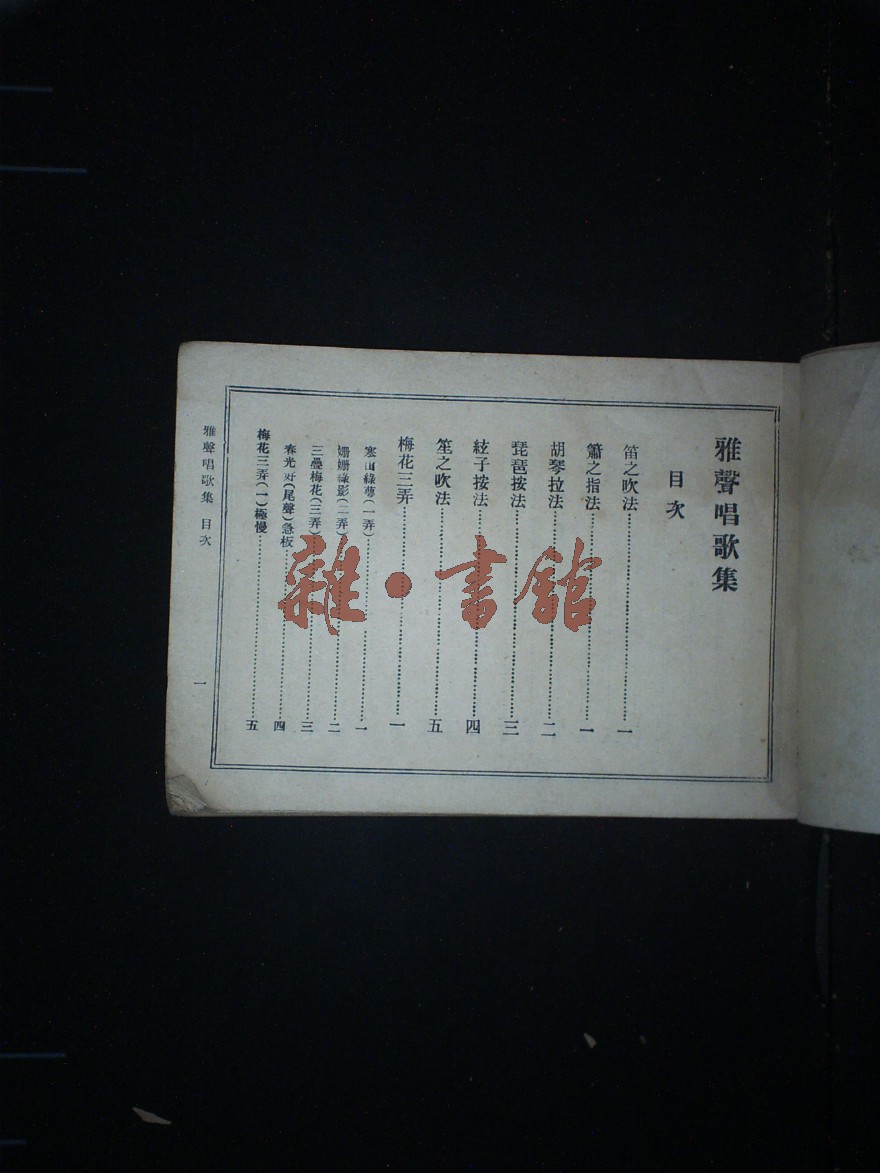 雅聲唱歌集
目次
笛之吹法 一
簫之指法 一
胡琴拉法 二
琵琶按法 三
絃子按法 四
笙之吹法 五
梅花三弄 一
寒山綠萼(一弄) 一
姍姍綠影(二弄) 二
三疊梅花(三弄) 三
春光好(尾聲)急板 四
梅花三弄(一)極慢 五
雅聲唱歌集 目次 一
雜·書館